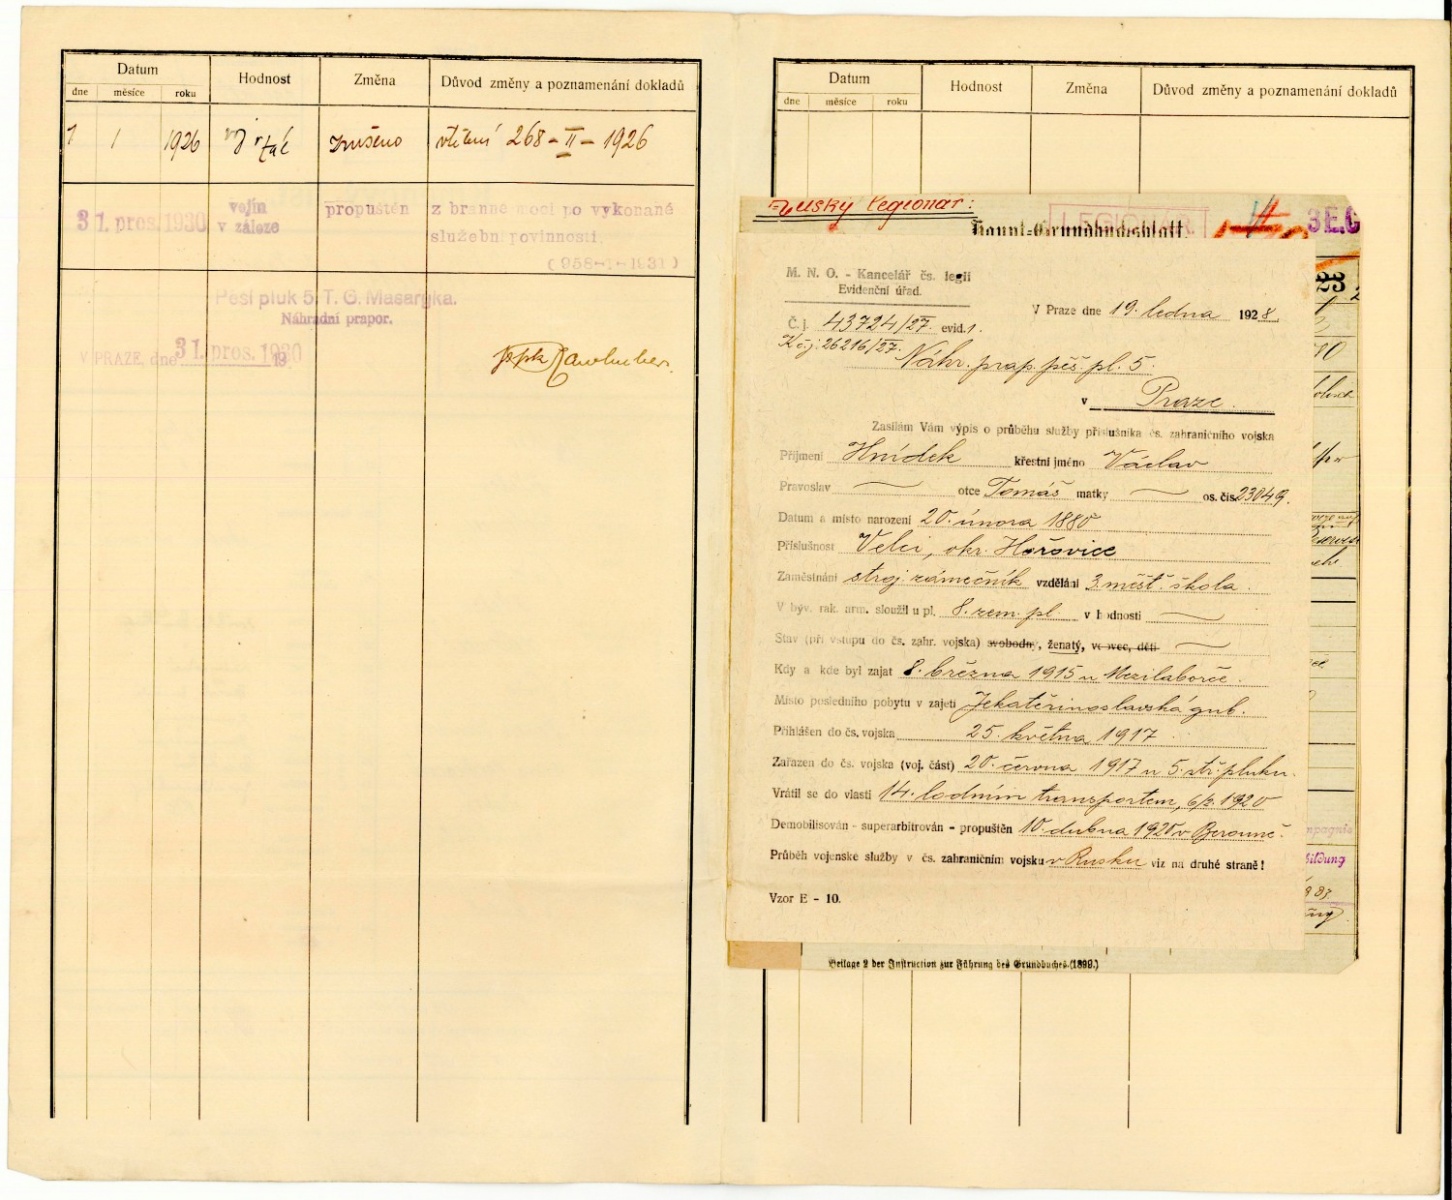 Datum Hodnost Změna Důvod změny a poznamenání dokladů
dne měsíce roku
1 1 1926 voj. v zál. Zrušeno vtělení 268-II-1926
31. pros. 1930 vojín v záloze propuštěn z branné moci po vykonané
služební povinnosti.
(958-1-1931)
Pěší pluk 5 T. G. Masaryka.
Náhradní prapor.
V PRAZE, dne 31. pros. 1930
Datum Hodnost Změna Důvod změny a poznamenání dokladů
dne měsíce roku
Ruský legionář:
LEGIONÁŘ
Haupt-Grundbuchsblatt
M. N. O. - Kancelář čs. legií
Evidenční úřad.
V Praze dne 19. ledna 1928.
Č. j. 43724/27. evid. 1.
K č. j. 26216/27.
Náhr. prap. pěš. pl. 5.
v Praze.
Zasílám Vám výpis o průběhu služby příslušníka čs. zahraničního vojska
Příjmení Hnídek křestní jméno Václav
Pravoslav — otce Tomáš matky — os. čís. 23049.
Datum a místo narození 20. února 1880
Příslušnost Velci, okr. Hořovice
Zaměstnání stroj. zámečník vzdělání 3. měšť. škola.
V býv. rak. arm. sloužil u pl. 8. zem. pl. v hodnosti —
Stav (při vstupu do čs. zahr. vojska) svobodný, ženatý, vdovec, dětí —
Kdy a kde byl zajat 8. března 1915 u Mezilaborče.
Místo posledního pobytu v zajetí Jekatěrinoslavská gub.
Přihlášen do čs. vojska 25. května 1917
Zařazen do čs. vojska (voj. část) 20. června 1917 u 5. stř. pluku.
Vrátil se do vlasti 14. lodním transportem, 6/2. 1920
Demobilisován - superarbitrován - propuštěn 10. dubna 1920 v Berouně.
Průběh vojenské služby v čs. zahraničním vojsku v Rusku viz na druhé straně!
Vzor E - 10.
Beilage 2 der Instruction zur Führung des Grundbuches (1899.)
23
Bildung